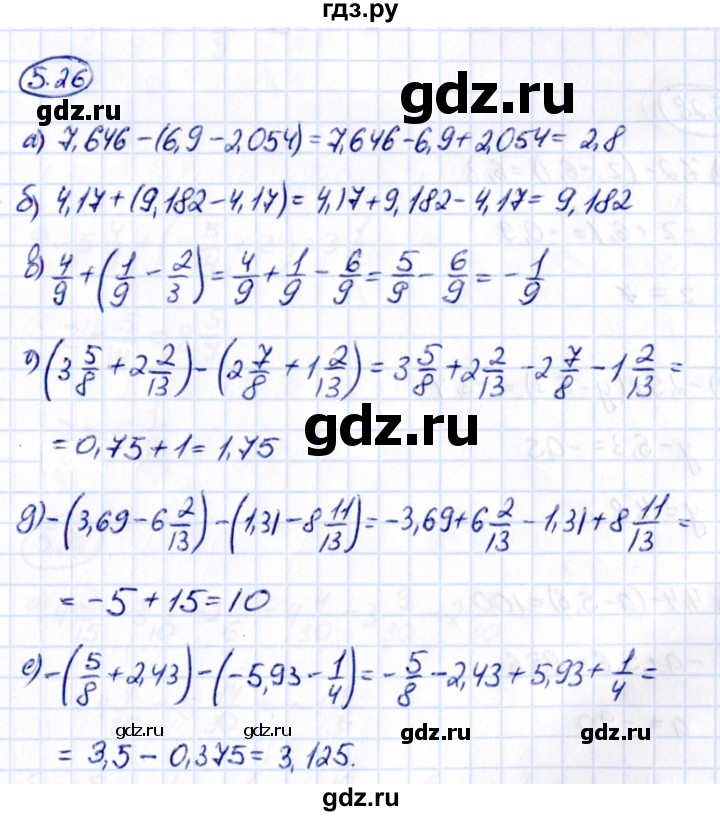 гдз.ру
5.26
gdz.ru
gdz.ru
а) 7,646 - (6,9 - 2,054) = 7,646 - 6,9 + 2,054 = 2,8
б) 4,17 + (9,182 - 4,17) = 4,17 + 9,182 - 4,17 = 9,182
в) 4/9 + (1/9 - 2/3) = 4/9 + 1/9 - 6/9 = 5/9 - 6/9 = -1/9
г) (3 5/8 + 2 2/13) - (2 7/8 + 1 2/13) = 3 5/8 + 2 2/13 - 2 7/8 - 1 2/13 =
= 0,75 + 1 = 1,75
gdz.ru
д) -(3,69 - 6 2/13) - (1,31 - 8 11/13) = -3,69 + 6 2/13 - 1,31 + 8 11/13 =
= -5 + 15 = 10
е) -(5/8 + 2,43) - (-5,93 - 1/4) = -5/8 - 2,43 + 5,93 + 1/4 =
gdz.ru gdz.ru gdz.ru gdz.ru
= 3,5 - 0,375 = 3,125.
gdz.ru